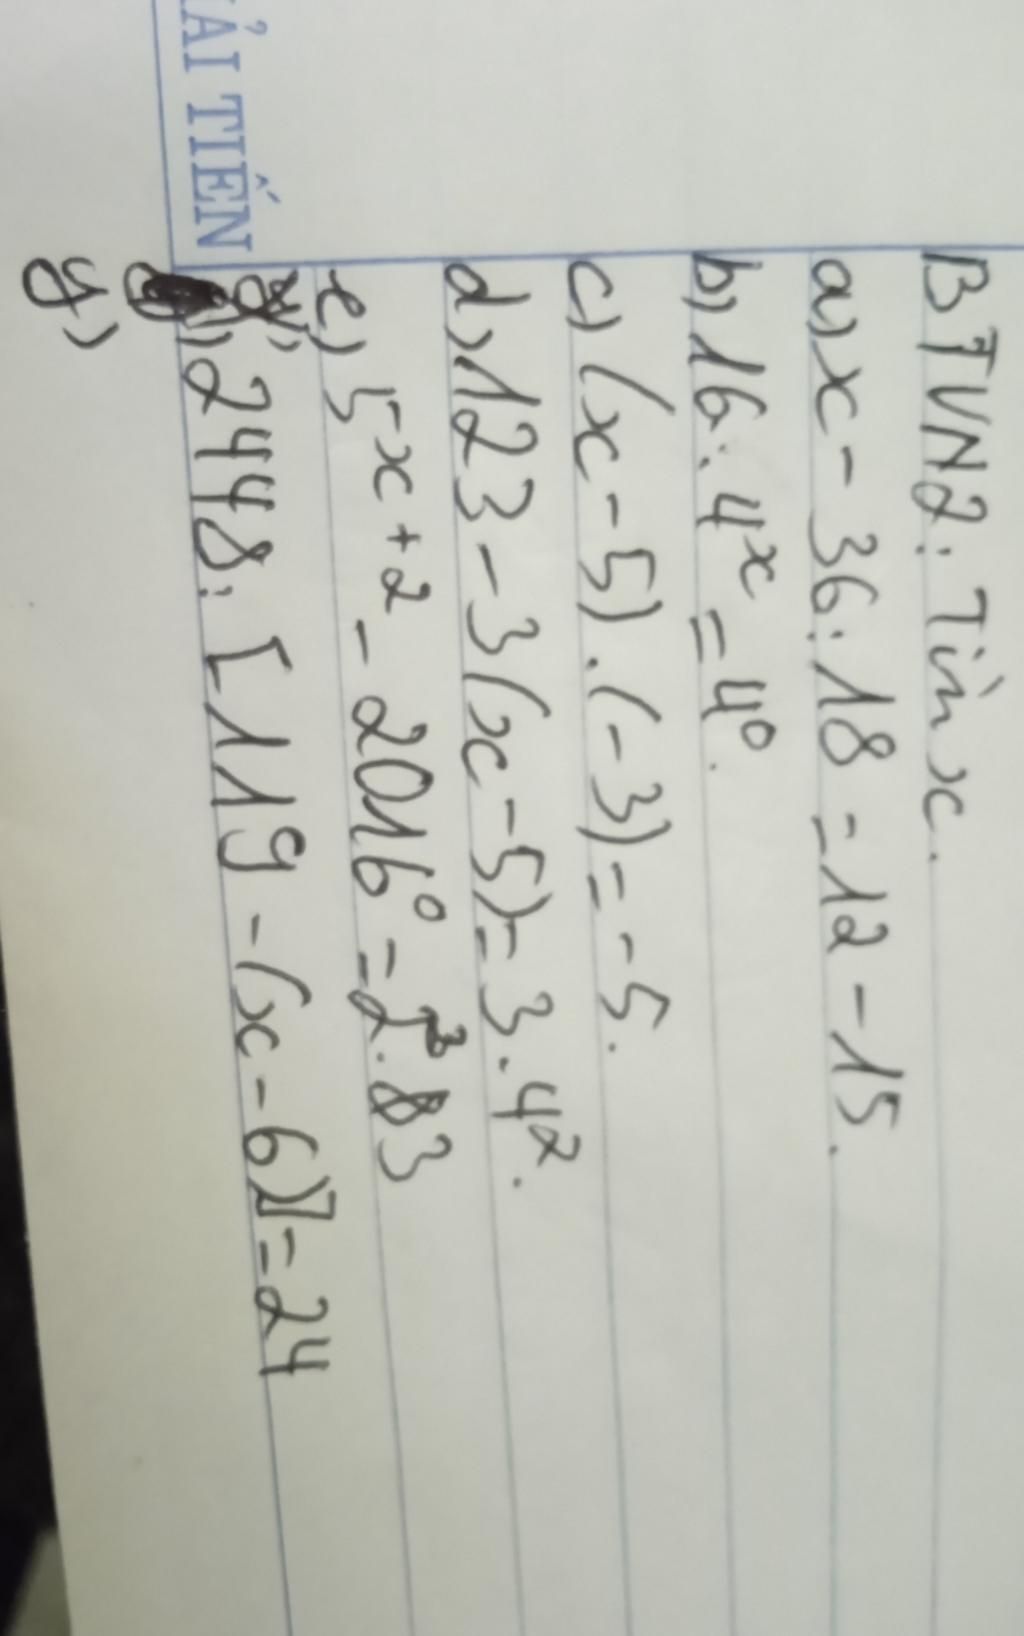 BTVN2: Tìm x.
a) x - 36 : 18 = 12 - 15.
b) 16 : 4ˣ = 4⁰.
c) (x - 5) . (-3) = -5.
d) 123 - 3(x - 5) = 3 . 4².
e) 5ˣ⁺² - 2016⁰ = 2³ . 83
g) 2448 : [119 - (x - 6)] = 24
y)
ẢI TIẾN